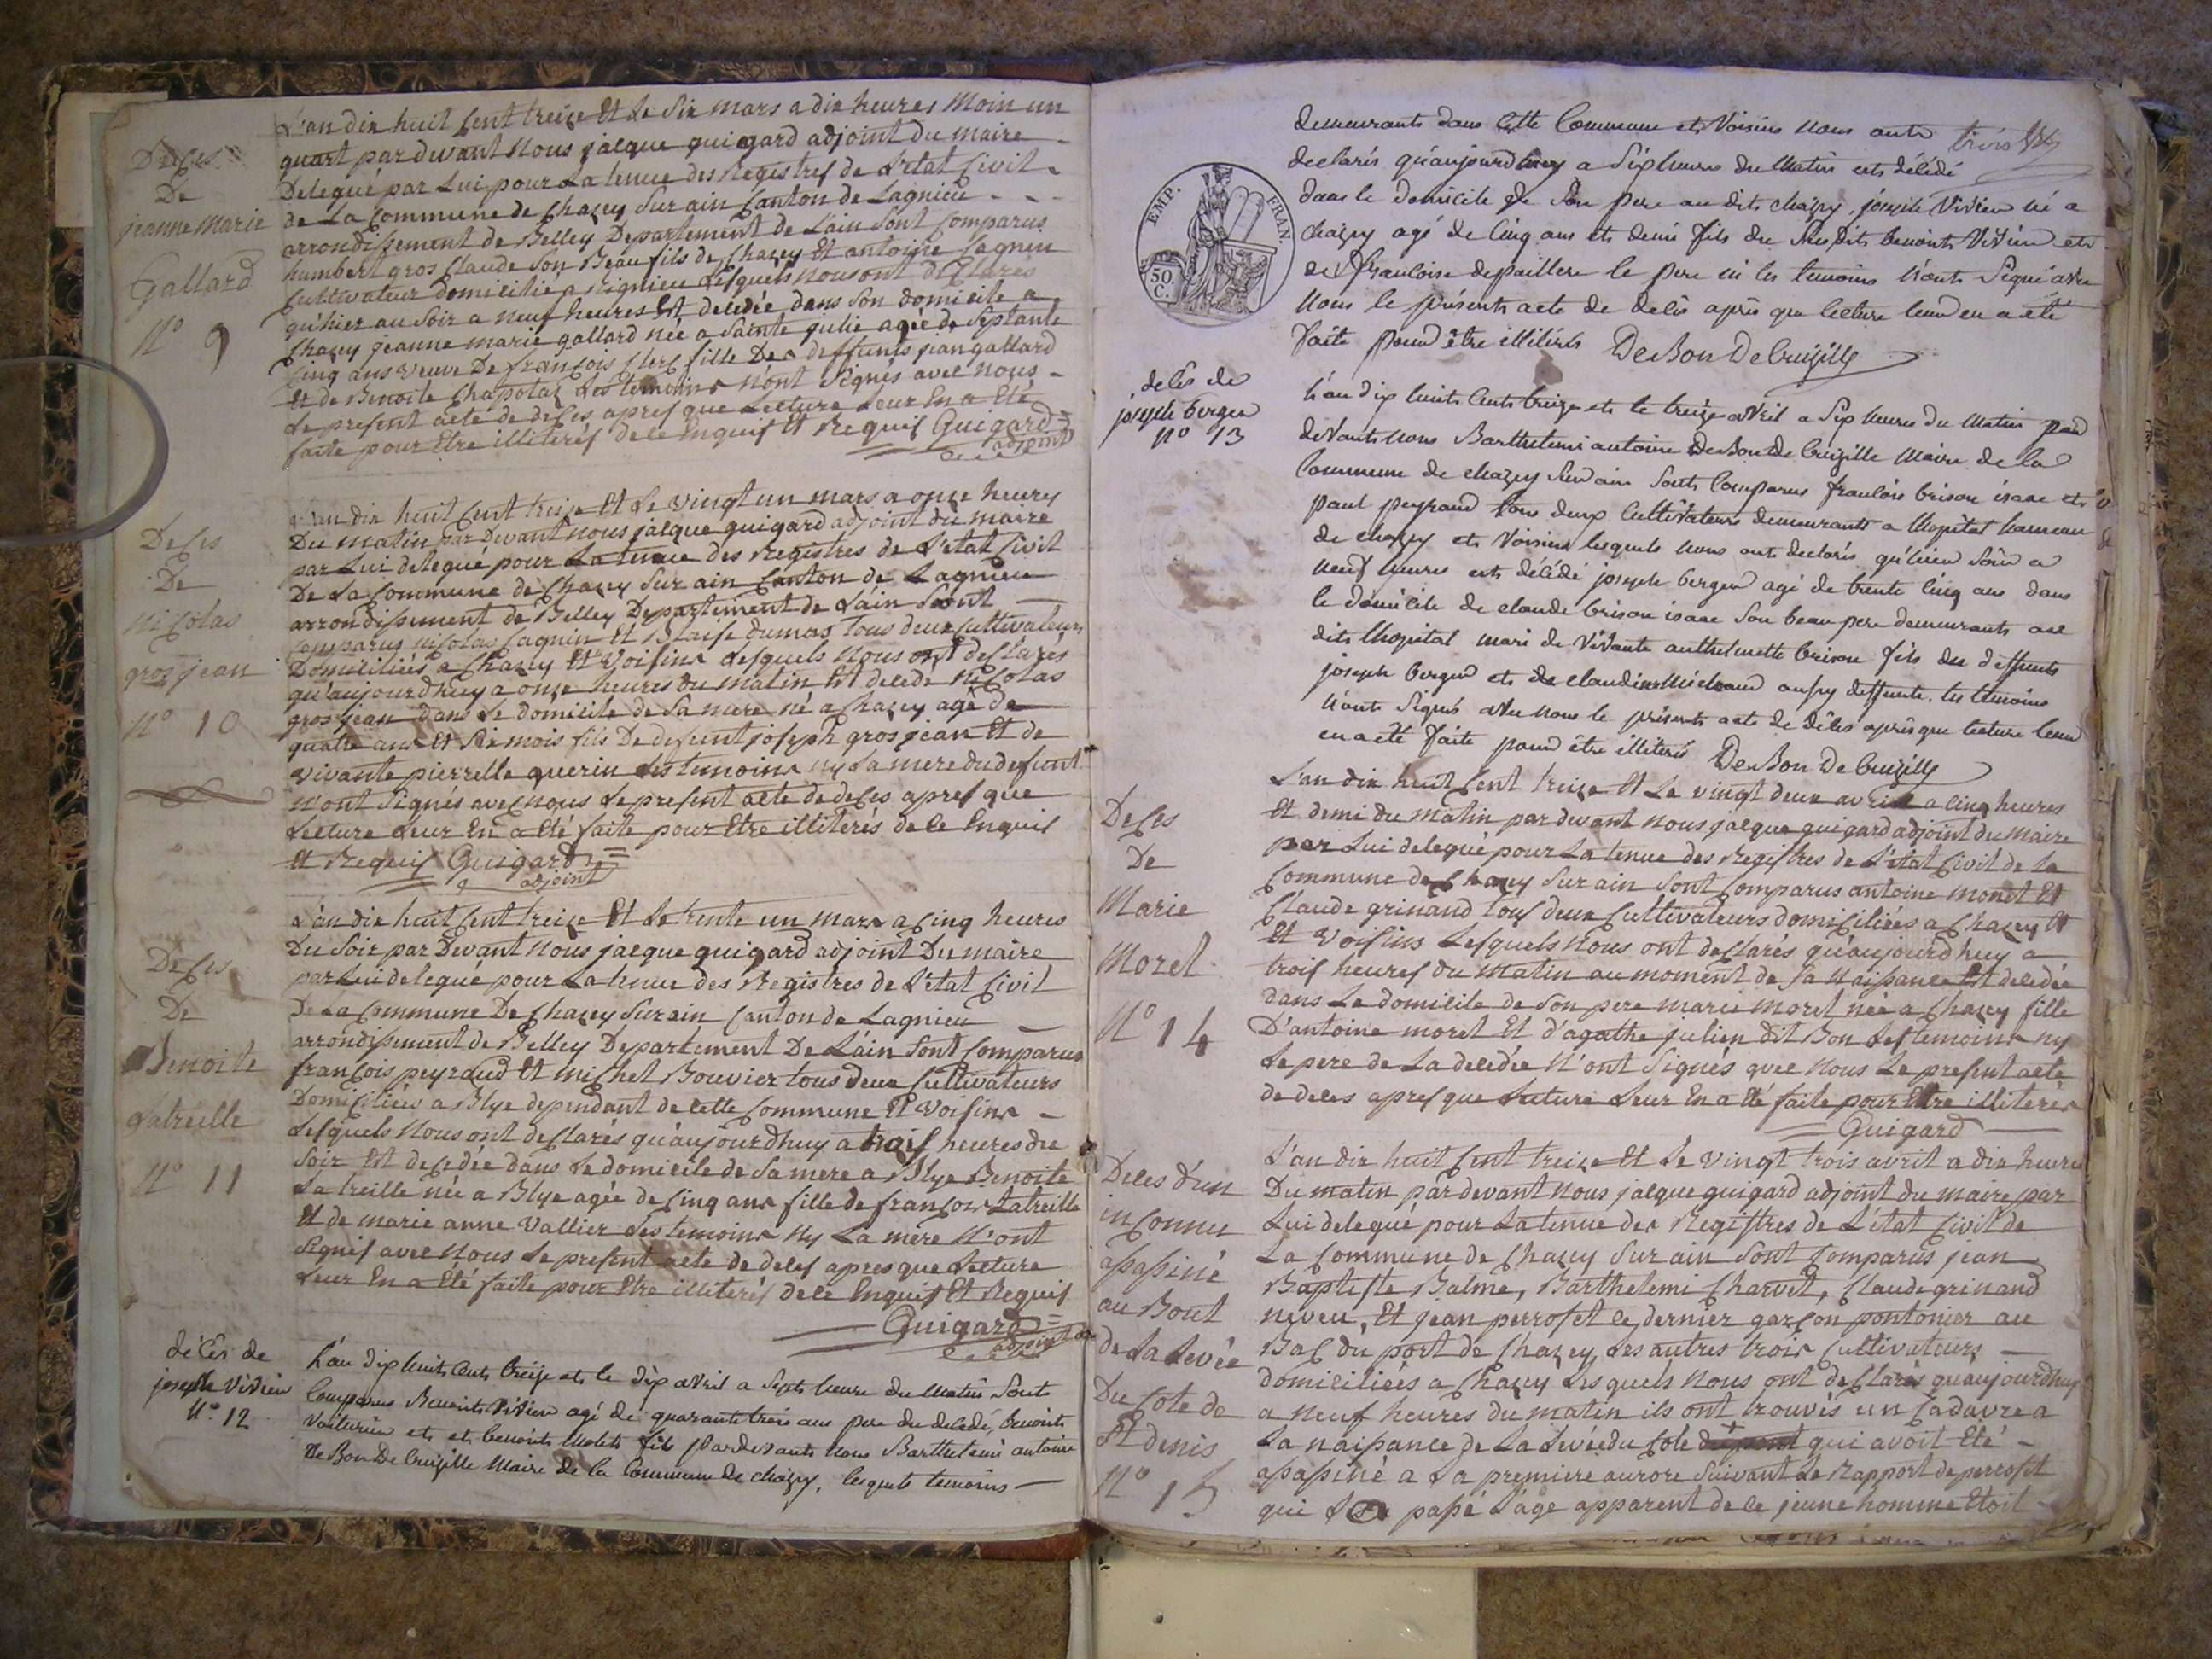 L'an dix huit Cent treize Et Le Six mars a dix heures moin un
quart par devant Nous jacque guigard adjoint du maire
Delegué par Lui pour La tenue des Registres de L'etat Civil
de La Commune de Chazey Sur ain Canton de Lagnieu
arrondissement de Belley Departement de L'ain Sont Comparus
humbert gros Claude Son Beau fils de Chazey Et antoine Cagnin
Cultivateur domicilié a Rignieu Lesquels nous ont déClarés
qu'hier au Soir a neuf heures Est decedée dans Son domicile a
Chazey jeanne marie gallard née a Sainte julie agée de Septante
Cinq ans veuve De françois Clerc fille De deffunts jean gallard
Et de Benoite Chapotaz Les temoins N'ont Signés avec nous
Le present acte de deCes apres que Lecture Leur En a Eté
faite pour Etre illiterés de ce Enquis Et Requis Guigard
adjoint
DeCes
De
jeanne Marie
Gallard
N° 9
L'an dix huit Cent treize Et Le vingt un mars a onze heures
Du matin par Devant nous jacque guigard adjoint du maire
par Lui delegué pour La tenue des Registres de L'etat Civil
De La Commune de Chazey Sur ain Canton de Lagnieu
arrondissement de Belley Departement de L'ain Sont
Comparus nicolas Cagnin Et Blaise dumas tous deux Cultivateurs
Domiciliés a Chazey Et Voisins Lesquels Nous ont déClarés
qu'aujourdhuy a onze heures du matin Est decedé Nicolas
gros jean dans Le domicile de Sa mere né a Chazey agé de
quatre ans Et Six mois fils De defunt joseph gros jean Et de
vivante pierrette guerin Les temoins ny La mere du defunt
N'ont Signés avec nous Le present acte de deCes apres que
Lecture Leur En a Eté faite pour Etre illiterés de ce Enquis
Et Requis Guigard
adjoint
DeCes
De
nicolas
gros jean
N° 10
L'an dix huit Cent treize Et Le trente un mars a Cinq heures
Du Soir par Devant Nous jacque guigard adjoint Du maire
par Lui delegué pour La tenue des Registres de L'etat Civil
De La Commune De Chazey Sur ain Canton de Lagnieu
arrondissement de Belley Departement De L'ain Sont Comparus
françois peyraud Et Michel Bouvier tous deux Cultivateurs
Domiciliés a Blye dependant de cette Commune Et Voisins
Lesquels Nous ont déClarés qu'aujourdhuy a trois heures du
Soir Est deCedée dans Le domicile de Sa mere a Blye Benoite
La treille née a Blye agée de Cinq ans fille de françois Latreille
Et de marie anne Vallier Les temoins Ny La mere N'ont
Signés avec Nous Le present acte de deCes apres que Lecture
Leur En a Eté faite pour Etre illiterés de ce Enquis Et Requis
Guigard
adjoint
DeCes
De
Benoite
Latreille
N° 11
L'an dix huit cent treize et le dix avril a Sept heure du Matin Sont
Comparus Benoit Vivien agé de quarante trois ans pere du decedé, benoit
Voiturier et et benoit Molet fils pardevant Nous Barthelemi antoine
DeBon De Cruzille Maire de la Commune de chazey, lesquels temoins
décès de
joseph Vivien
N° 12
demeurants dans Cette Commune et Voisins Nous ont trois
declarés qu'aujourdhuy a Six heures du Matin est décédé
dans le Domicile de Son pere au dit chazey joseph Vivien né a
chazey agé de Cinq ans et demi fils du Susdit benoit Vivien et
de françoise depaillere le pere ni les temoins N'ont Signé avec
Nous le présent acte de décès après que lecture leur en a été
faite pour être illiterés DeBon DeCruzille
EMP. FRAN.
50
C.
L'an dix huit Cent treize et le treize avril a Six heures du Matin par
devant nous Barthelemi antoine DeBon De Cruzille Maire de la
Commune de chazey Sur ain Sont Comparus francois brison isaac et
paul peyraud tous deux Cultivateurs demeurants a Lhopital hameau
de chazey et Voisins lesquels Nous ont declarés qu'hier Soir a
neuf heures est décédé joseph berger agé de trente Cinq ans dans
le domicile de claude brison isaac Son beau pere demeurants au
dit Lhopital mari de Vivante anthelmette brison fils de deffunts
joseph berger et de claudine Michaud aussy deffunte. les témoins
N'ont Signés avec nous le présent acte de décès après que lecture leur
en a été faite pour être illiterés DeBon DeCruzille
décès de
joseph berger
N° 13
L'an dix huit Cent treize Et Le vingt deux avril a Cinq heures
Et demi du matin par devant nous jacque guigard adjoint du maire
par Lui delegué pour La tenue des Registres de L'etat Civil de La
Commune de Chazey Sur ain Sont Comparus antoine monet Et
Claude grinand tous deux Cultivateurs domiciliées a Chazey Et
Et Voisins Lesquels Nous ont deClarés qu'aujourdhuy a
trois heures du matin au moment de Sa Naissance Est decedée
dans Le domicile de Son pere marie moret née a Chazey fille
D'antoine moret Et d'agathe julien dit Bon Les temoins ny
Le pere de La decedée N'ont Signés avec Nous Le present acte
de deces apres que Lecture Leur En a Eté faite pour Etre illiterés
Guigard
DeCes
De
Marie
Moret
N° 14
L'an dix huit Cent treize Et Le vingt trois avril a dix heures
Du matin par devant nous jacque guigard adjoint du maire par
Lui delegué pour La tenue des Registres de L'etat Civil de
La Commune de Chazey Sur ain Sont Comparus jean
Baptiste Balme, Barthelemi Charvet, Claude grinand
neveu, Et jean perroset ce dernier garçon pontonier au
BaC du port de Chazey Les autres trois Cultivateurs
domiciliées a Chazey Lesquels Nous ont deClarés qu'aujourdhuy
a neuf heures du matin ils ont trouvés un Cadavre a
La naissance de La Levée du Coté du pont qui avoit Eté
assassiné a La premiere aurore Suivant Le Rapport de perroset
qui passé L'age apparent de ce jeune homme Etoit
Deces d'un
inConnu
assassiné
au Bout
de La Levée
Du Coté de
St denis
N° 15